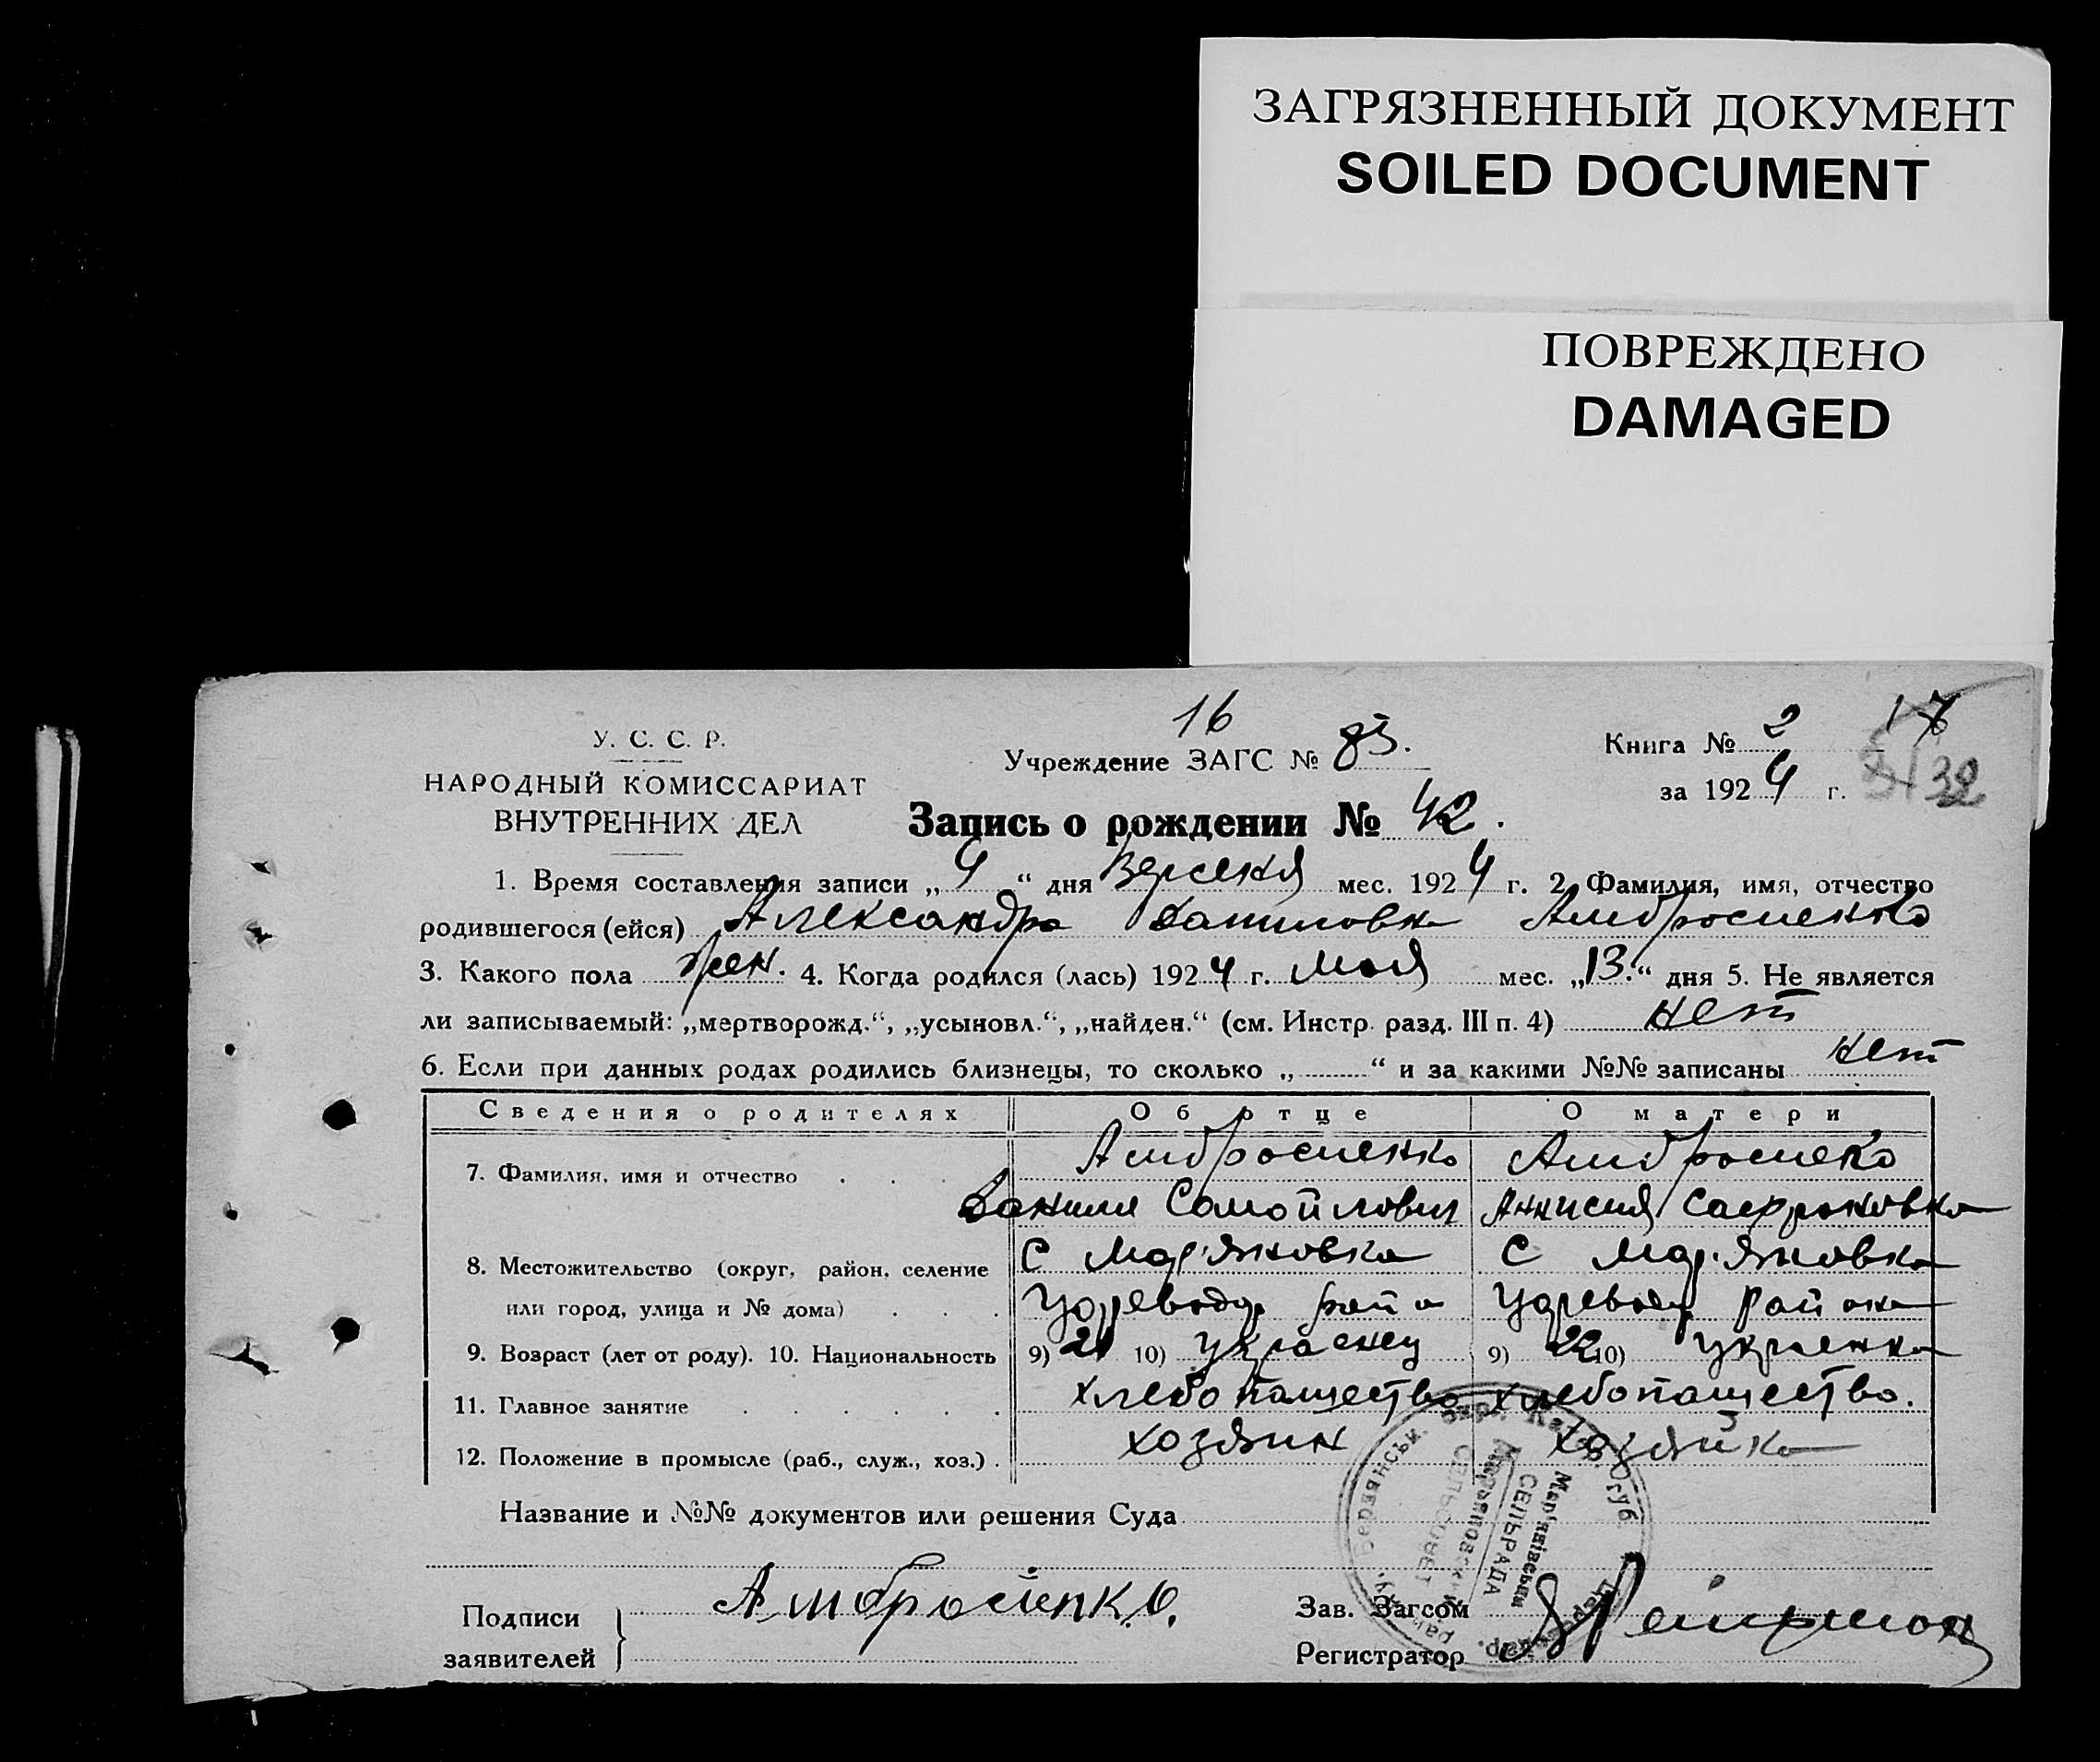 ЗАГРЯЗНЕННЫЙ ДОКУМЕНТ
SOILED DOCUMENT
ПОВРЕЖДЕНО
DAMAGED
16
У. С. С. Р.
НАРОДНЫЙ КОМИССАРИАТ
ВНУТРЕННИХ ДЕЛ
Учреждение ЗАГС № 83.
Книга № 2
за 1924 г. 32
Запись о рождении № 42.
1. Время составления записи „4“ дня мес. 1924 г. 2. Фамилия, имя, отчество
родившегося (ейся) Александра Даниловна Амбросиенко
3. Какого пола жен. 4. Когда родился (лась) 1924 г. Мая мес. „13.“ дня 5. Не является
ли записываемый: „мертворожд.“, „усыновл.“, „найден.“ (см. Инстр. разд. III п. 4) нет
6. Если при данных родах родились близнецы, то сколько „ “ и за какими №№ записаны нет
Сведения о родителях Об отце О матери
7. Фамилия, имя и отчество Амбросиенко Амбросиеко
Данила Самойлович Аннисия Сафроновна
8. Местожительство (округ, район, селение С Мар'яновка С Мар'яновка
или город, улица и № дома) района
9. Возраст (лет от роду). 10. Национальность 9) 21 10) украенец 9) 22 10) украенка
11. Главное занятие хлебопашество хлебопашество.
12. Положение в промысле (раб., служ., хоз.) хозяин хозяйка
Название и №№ документов или решения Суда
Бердянськ. Кат. губ.
Мар'янівська
СЕЛЬРАДА
Марьяновский
СЕЛЬСОВЕТ
Подписи
заявителей
Амбросиенко.
Зав. Загсом
Регистратор